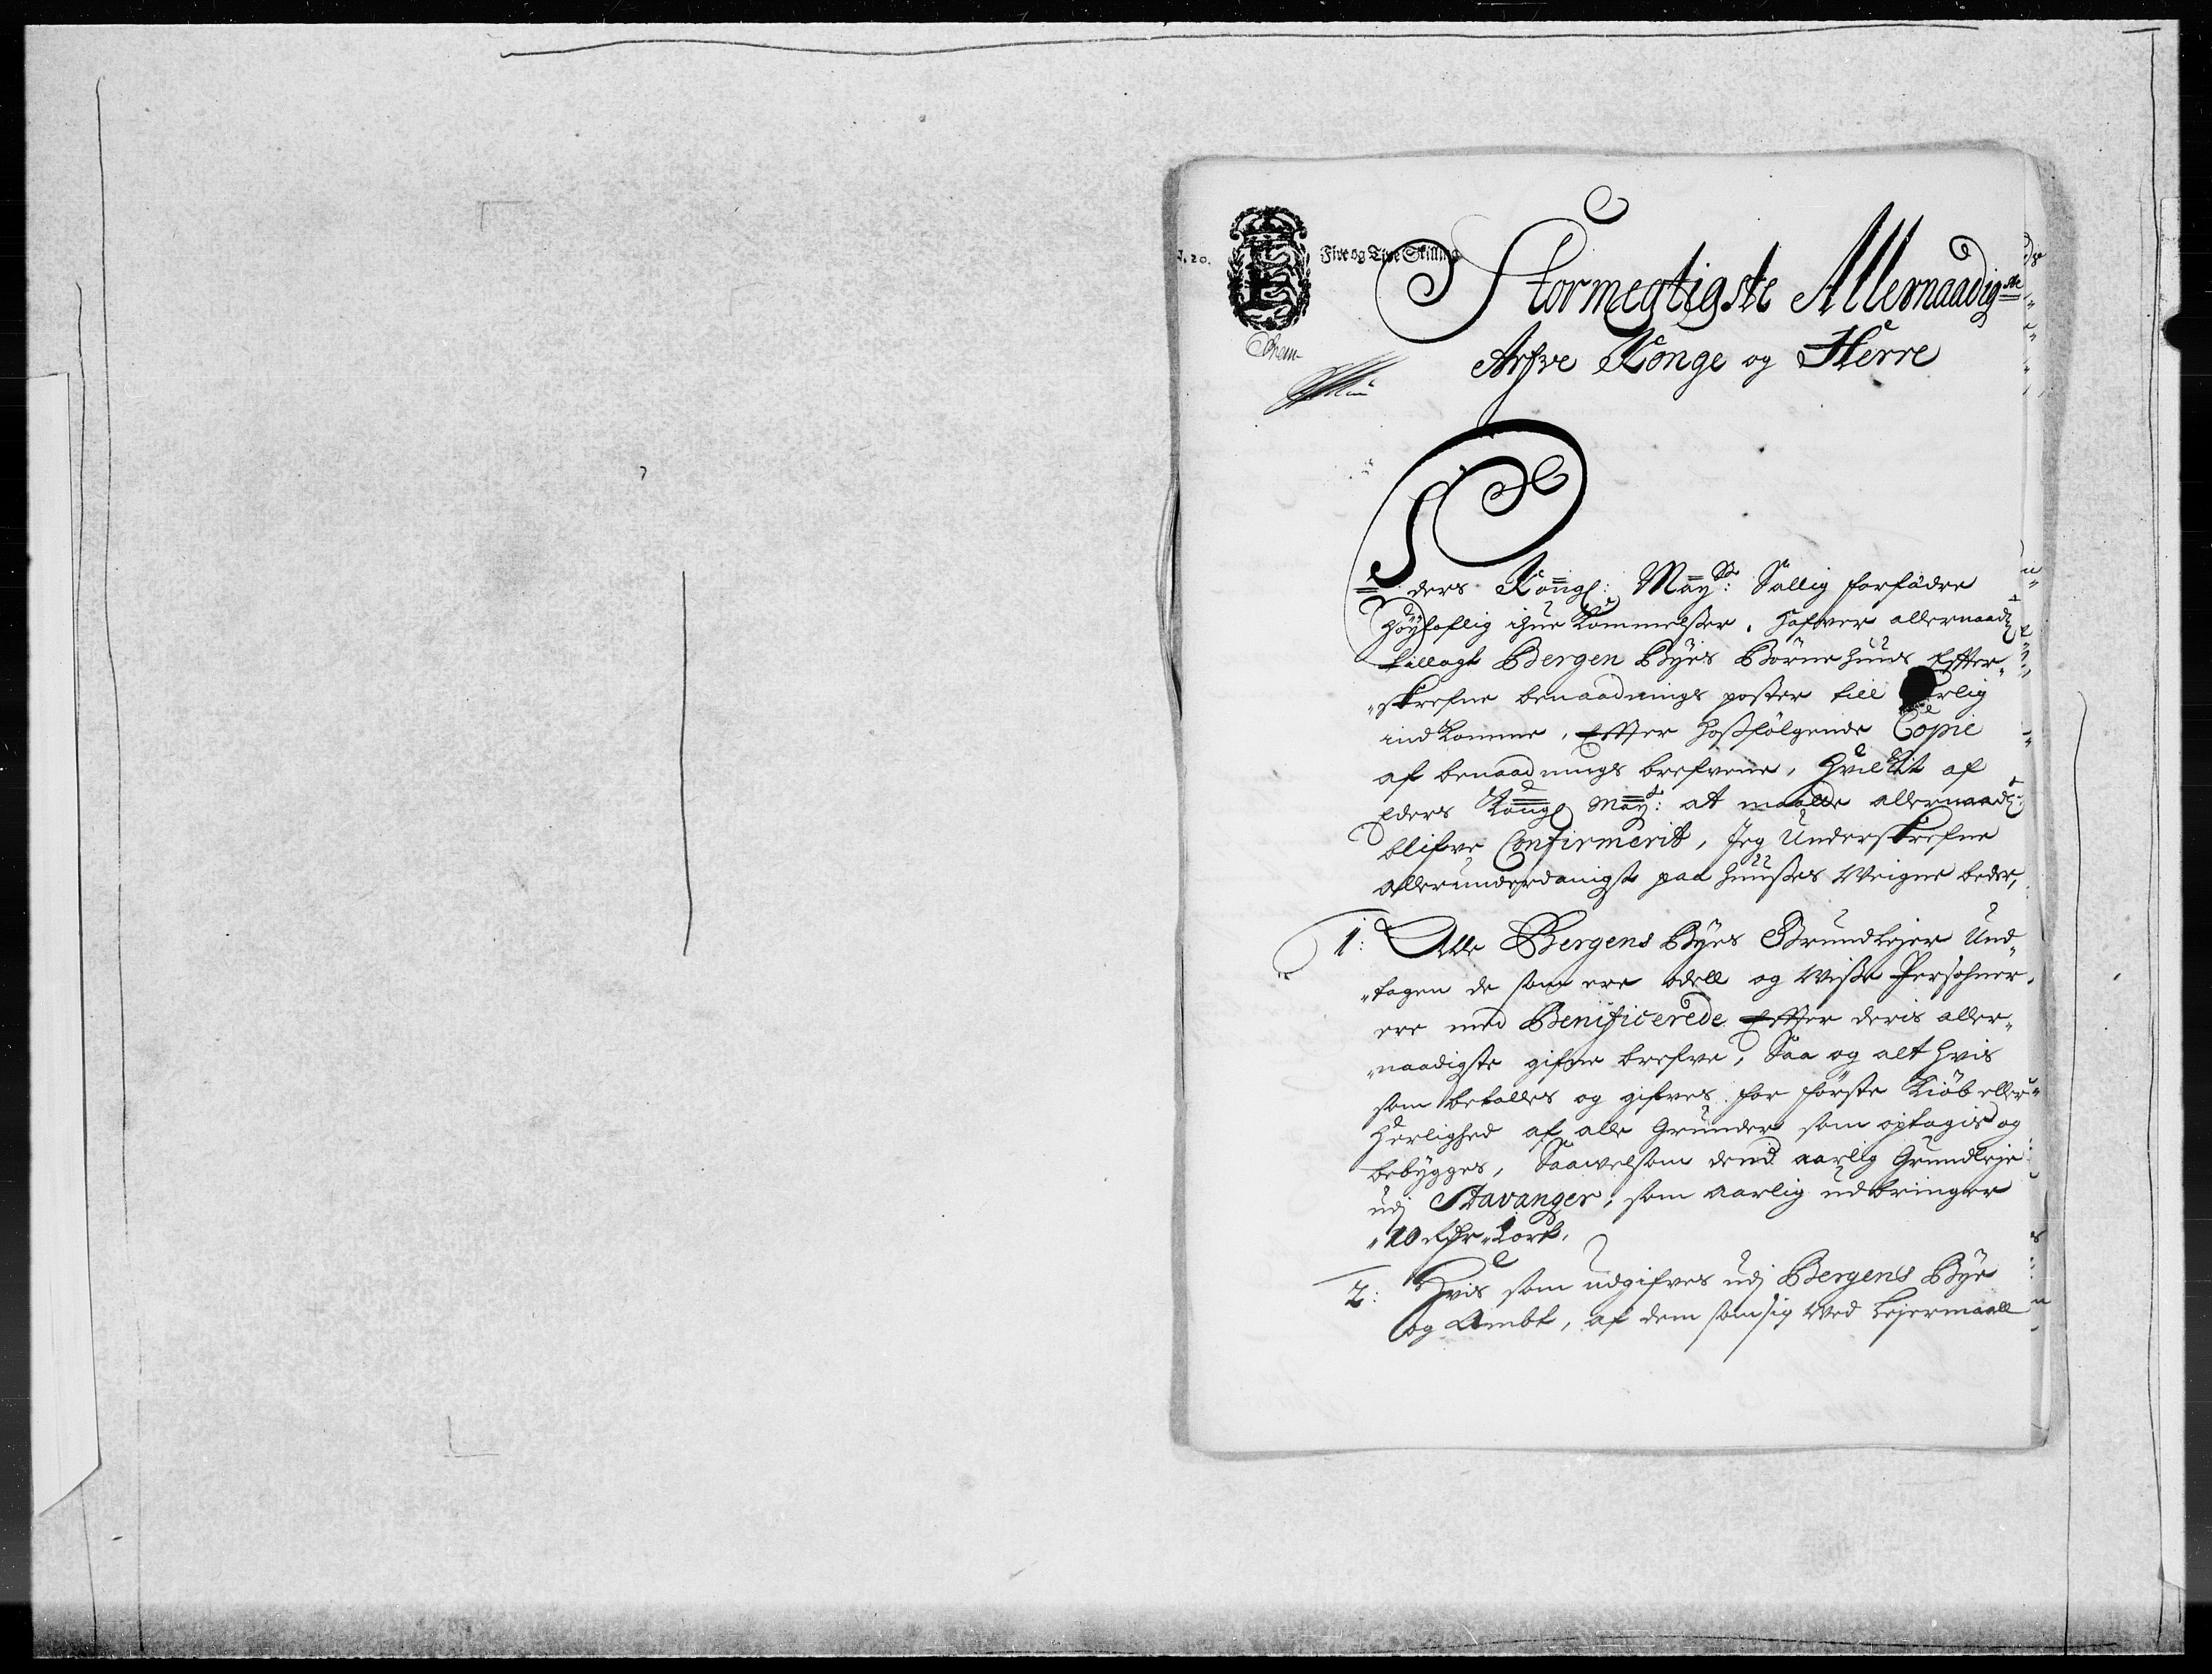 N. 20.
Fire og Tive Skilling
Stormegtigste Allernaadigste
Arfve Konge og Herre
Eders Kongl: Mayts: Sallig forfädre
Höyloflig ihue Kommelsser, hafver allernaadt
tillagt Bergen Byes Börnehuus Effter„
„skrefne benaadnings poster till aarlig
indkomme, Effter hoßfölgende Copie
af benaadnings brefvene, hvilkit af
Eders Kongl May: at maatte allernaadt
blifve Confirmerit, Jeg Underskrefne
allerunderdanigst paa huußes Weigne beder,
1: Alle Bergens Byes Grundlejer Und„
„tagen de som ere odell og Wisse Persohner,
ere med Benificerede Effter deris aller„
„naadigste gifne brefve, Saa og alt hvis
som betalles og gifves for förste Kiöb eller
herlighed af alle Grunder som optagis og
bebygges, Saavelsom dend aarlig Grundleje
udj Stavanger, som aarlig udbringer
„10 Rdr„ 1 ort,
2: Hvis som udgifves udj Bergens Bye
og Ambt, af dem som sig Ved Lejermaall